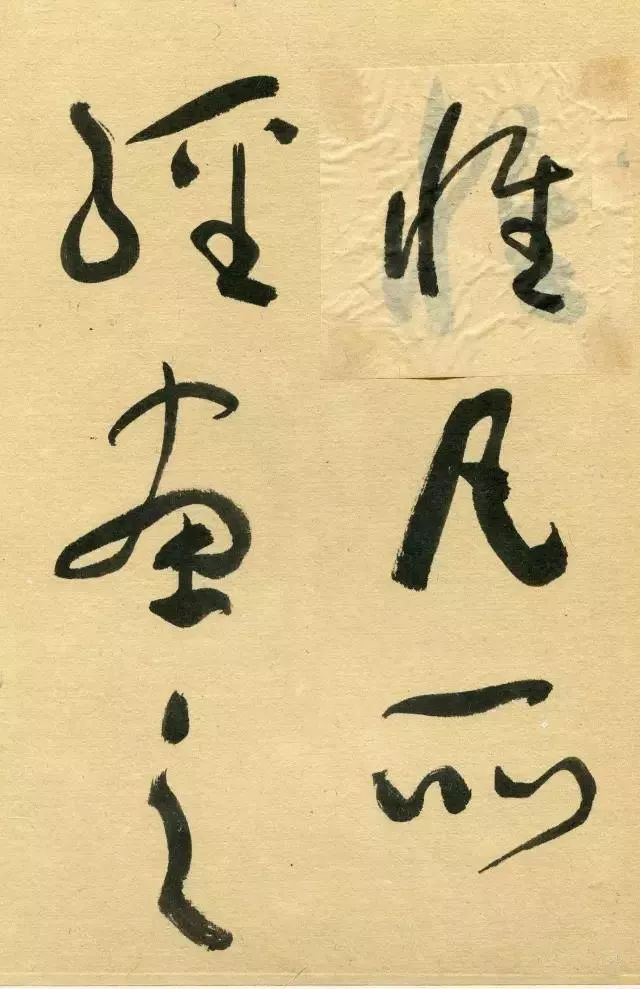 惟凡所
經畫之